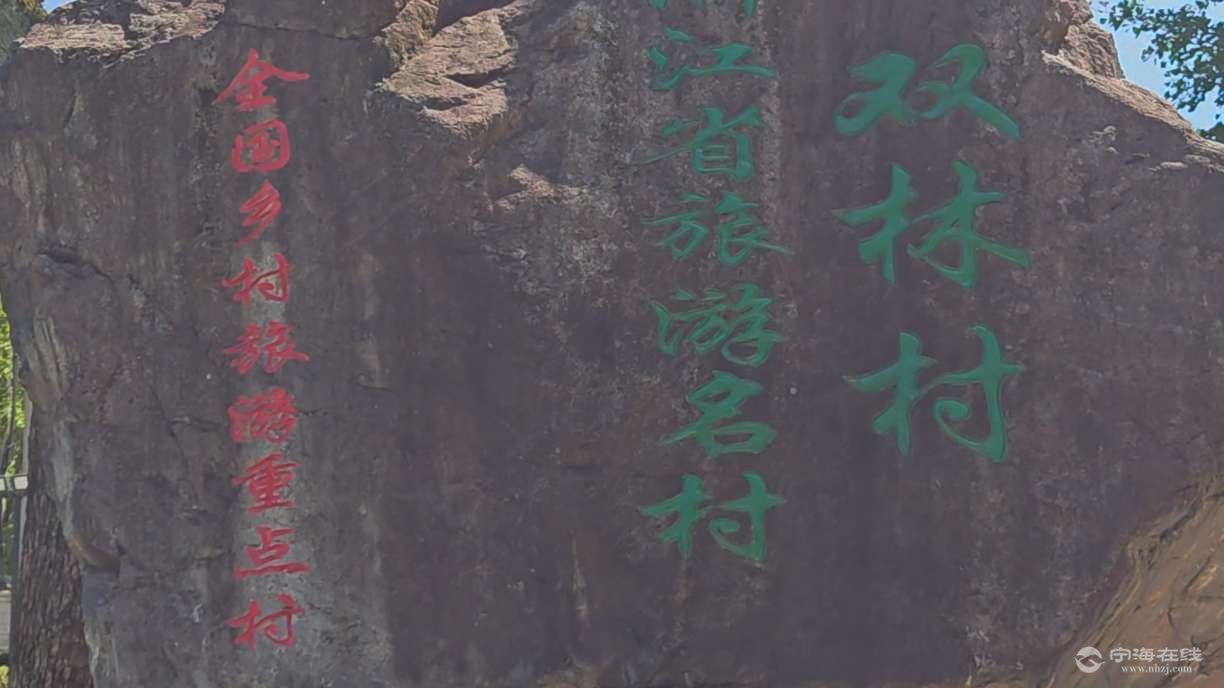 双林村
浙江省旅游名村
全国乡村旅游重点村
宁海在线
www.nhzj.com